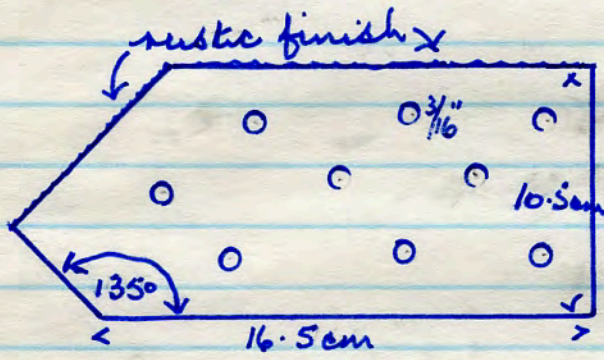 rustic finish
3/16"
10.5cm
135°
16.5cm